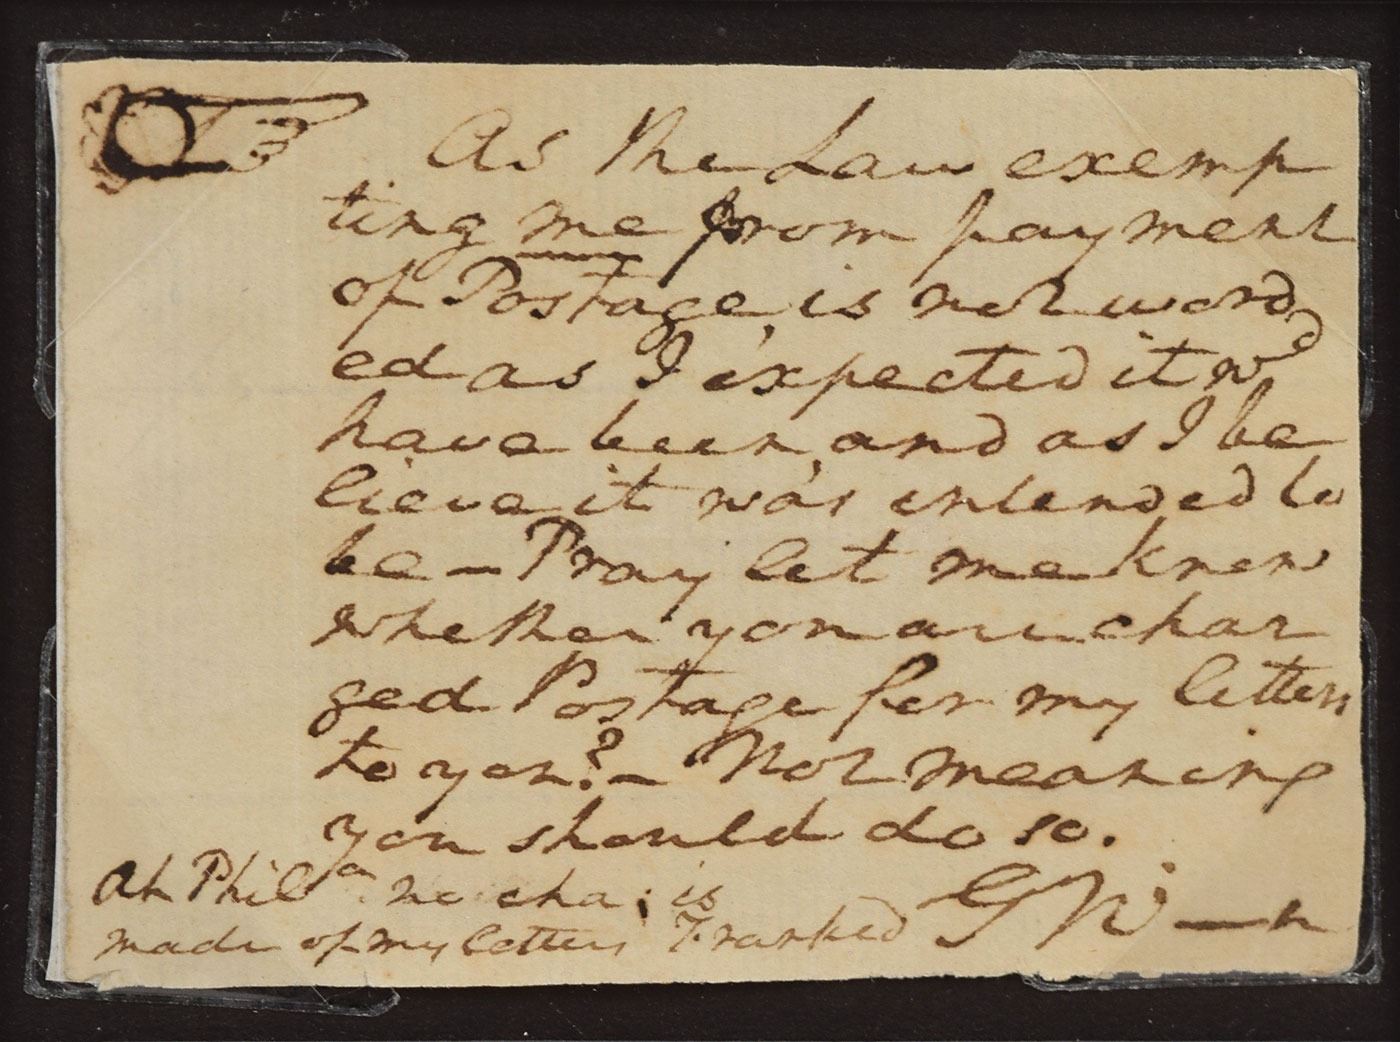 As the Law exemp
ting me from payment
of Postage, is not word
ed as I expected it wd
have been, and as I be
lieve it was intended to
be — Pray let me know
whether you are char
ged Postage for my letters
to you? — Not meaning
you should do so.
At Phila no cha is
made of my letters Franked GW—n